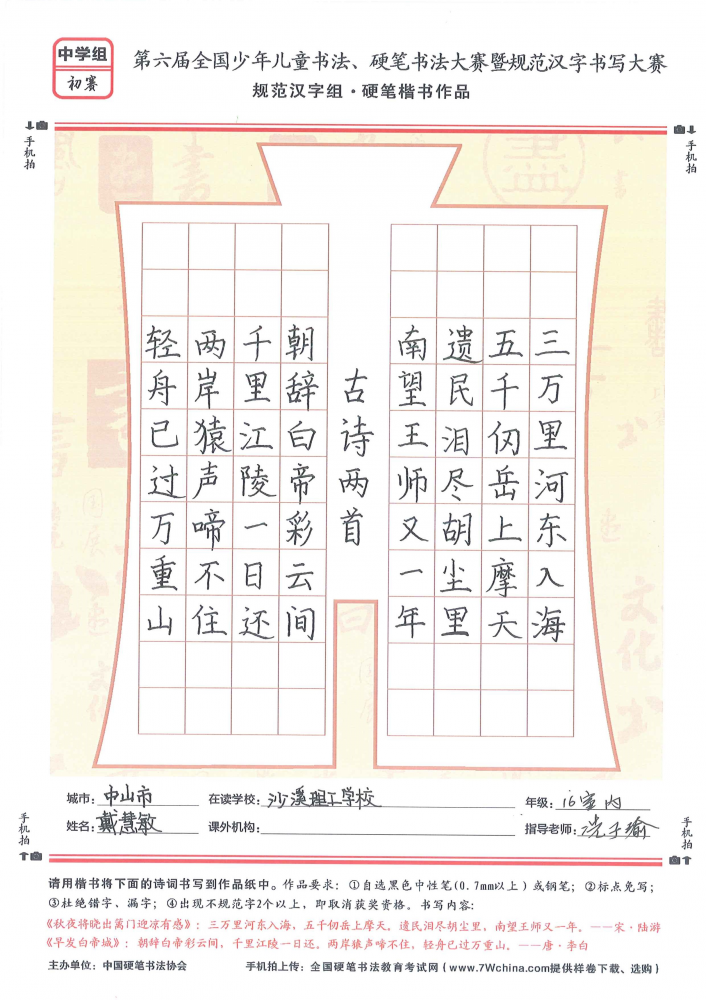 中学组
初赛
第六届全国少年儿童书法、硬笔书法大赛暨规范汉字书写大赛
规范汉字组·硬笔楷书作品
手机拍
手机拍
三万里河东入海
五千仞岳上摩天
遗民泪尽胡尘里
南望王师又一年
古诗两首
朝辞白帝彩云间
千里江陵一日还
两岸猿声啼不住
轻舟已过万重山
城市：中山市 在读学校：沙溪理工学校 年级：16室内
姓名：戴慧敏 课外机构： 指导老师：冼子瑜
手机拍
手机拍
请用楷书将下面的诗词书写到作品纸中。作品要求：①自选黑色中性笔(0.7mm以上)或钢笔；②标点免写；
③杜绝错字、漏字；④出现不规范字2个以上，即取消获奖资格。书写内容：
《秋夜将晓出篱门迎凉有感》：三万里河东入海，五千仞岳上摩天。遗民泪尽胡尘里，南望王师又一年。——宋·陆游
《早发白帝城》：朝辞白帝彩云间，千里江陵一日还。两岸猿声啼不住，轻舟已过万重山。——唐·李白
主办单位：中国硬笔书法协会 手机拍上传：全国硬笔书法教育考试网（www.7Wchina.com提供样卷下载、选购）